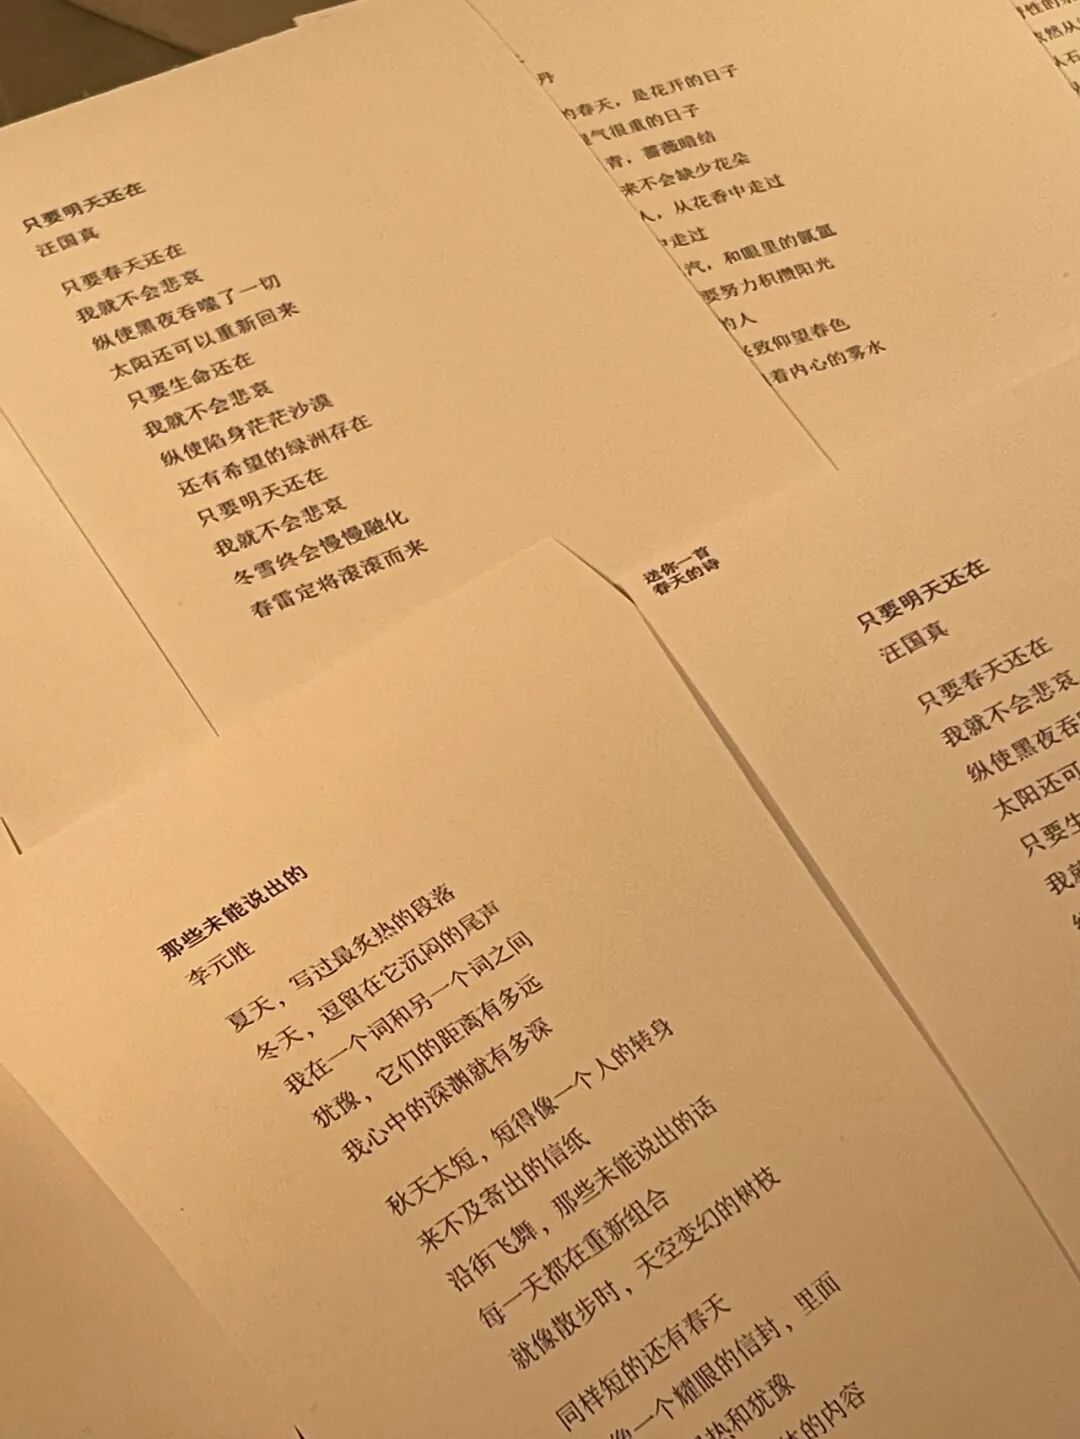 只要明天还在
汪国真
只要春天还在
我就不会悲哀
纵使黑夜吞噬了一切
太阳还可以重新回来
只要生命还在
我就不会悲哀
纵使陷身茫茫沙漠
还有希望的绿洲存在
只要明天还在
我就不会悲哀
冬雪终会慢慢融化
春雷定将滚滚而来
丹
的春天，是花开的日子
气很重的日子
青，蔷薇暗结
来不会缺少花朵
人，从花香中走过
中走过
汽，和眼里的氤氲
要努力积攒阳光
的人
致仰望春色
着内心的雾水
性的
然从
从石
送你一首
春天的诗
只要明天还在
汪国真
只要春天还在
我就不会悲哀
纵使黑夜吞
太阳还可
只要生
我就
那些未能说出的
李元胜
夏天，写过最炙热的段落
冬天，逗留在它沉闷的尾声
我在一个词和另一个词之间
犹豫，它们的距离有多远
我心中的深渊就有多深
秋天太短，短得像一个人的转身
来不及寄出的信纸
沿街飞舞，那些未能说出的话
每一天都在重新组合
就像散步时，天空变幻的树枝
同样短的还有春天
像一个耀眼的信封，里面
热和犹豫
的内容